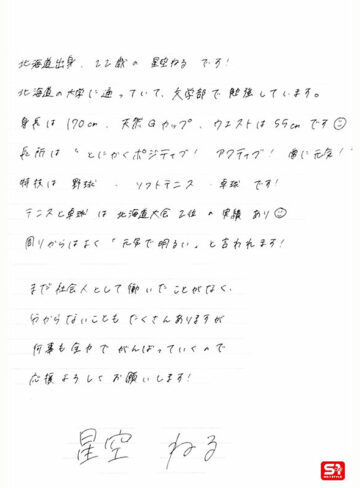 北海道出身、22歳の 星空ねる です!
北海道の大学に通っていて、文学部で勉強しています。
身長は 170cm、天然Gカップ、ウエストは55cmです☺
長所は "とにかくポジティブ! アクティブ! 常に元気!
特技は 野球 ・ ソフトテニス ・ 卓球 です!
テニスと卓球は 北海道大会 2位 の 実績 あり☺
周りからはよく "元気で明るい" と言われます!
まだ社会人として働いたことがなく、
分からないことも たくさんありますが
何事も全力で がんばっていくので
応援よろしくお願いします!
星空 ねる
S1
NO.1 STYLE